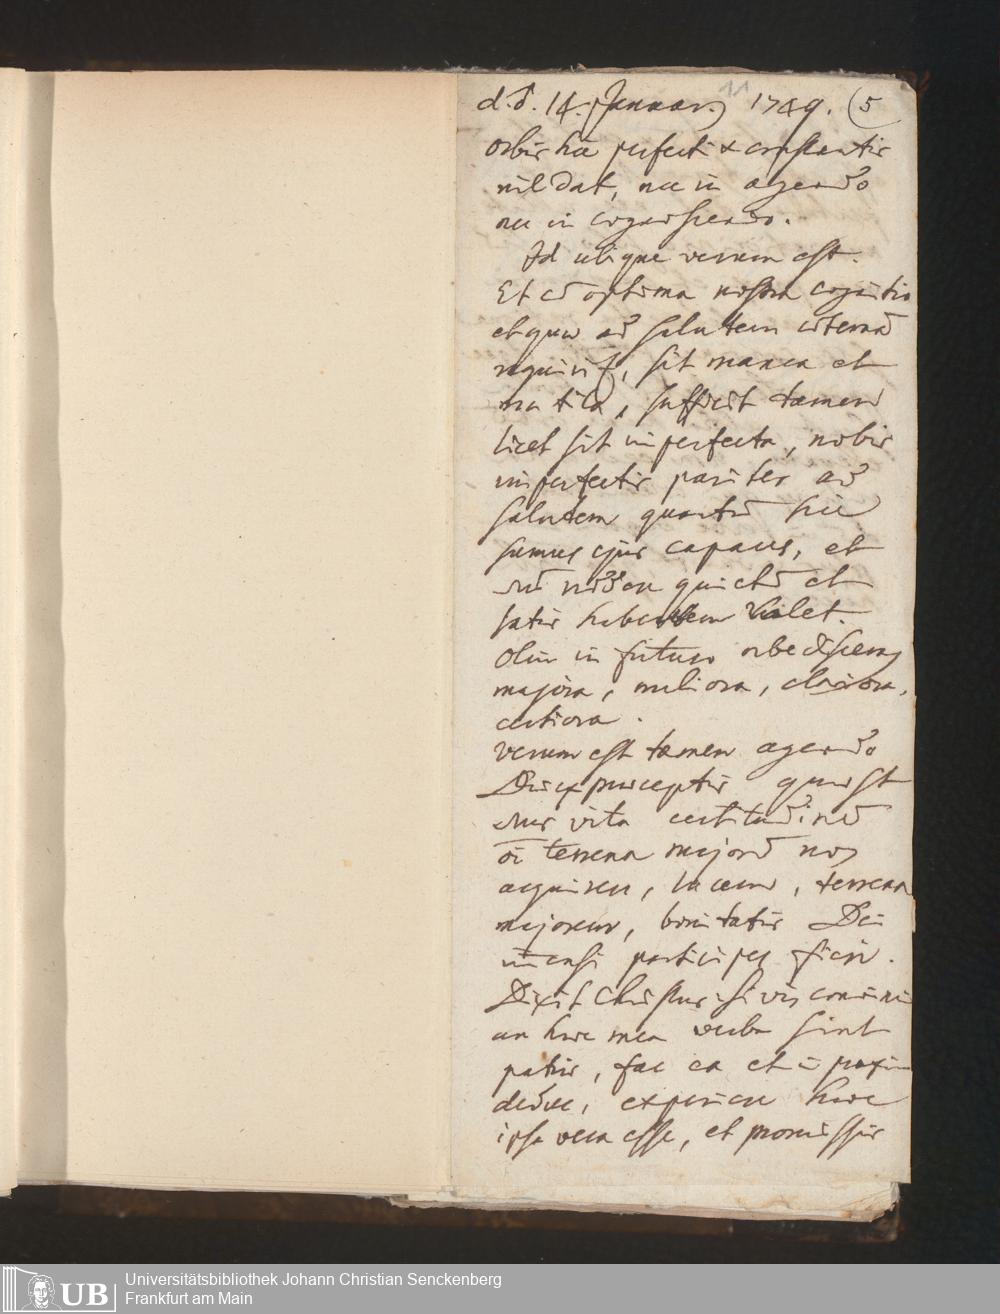 d. ♂. 14. Januar. 1749. (5
11
orbis hic perfecti & constantis
nil dat, nec in agendo
nec in cognoscendo.
Id ubique verum est.
Et cũ optima nostra cognitio
et quae ad salutem aeternã
requirit, sit manca et
mutila, sufficit tamen
licet sit imperfecta, nobis
imperfectis pariter ad
salutem quantũ hic
sumus ejus capaces, et
quietũ et
satis valet.
Olim in futuro orbe discemus
majora, meliora, clariora,
certiora.
verum est tamen agendo
Dei ex praeceptis
vita certitudinẽ
oĩ terrena majorẽ nos
acquirere, lucem, terrena
majorem, bonitatis Dei
im̃ensi participes fieri.
Dixit Christus: si vis convinci
an haec mea verba sint
patris, fac ea et ĩ praxin
deduc, experiere haec
ipsa vera esse, et promissis
UB
Universitätsbibliothek Johann Christian Senckenberg
Frankfurt am Main